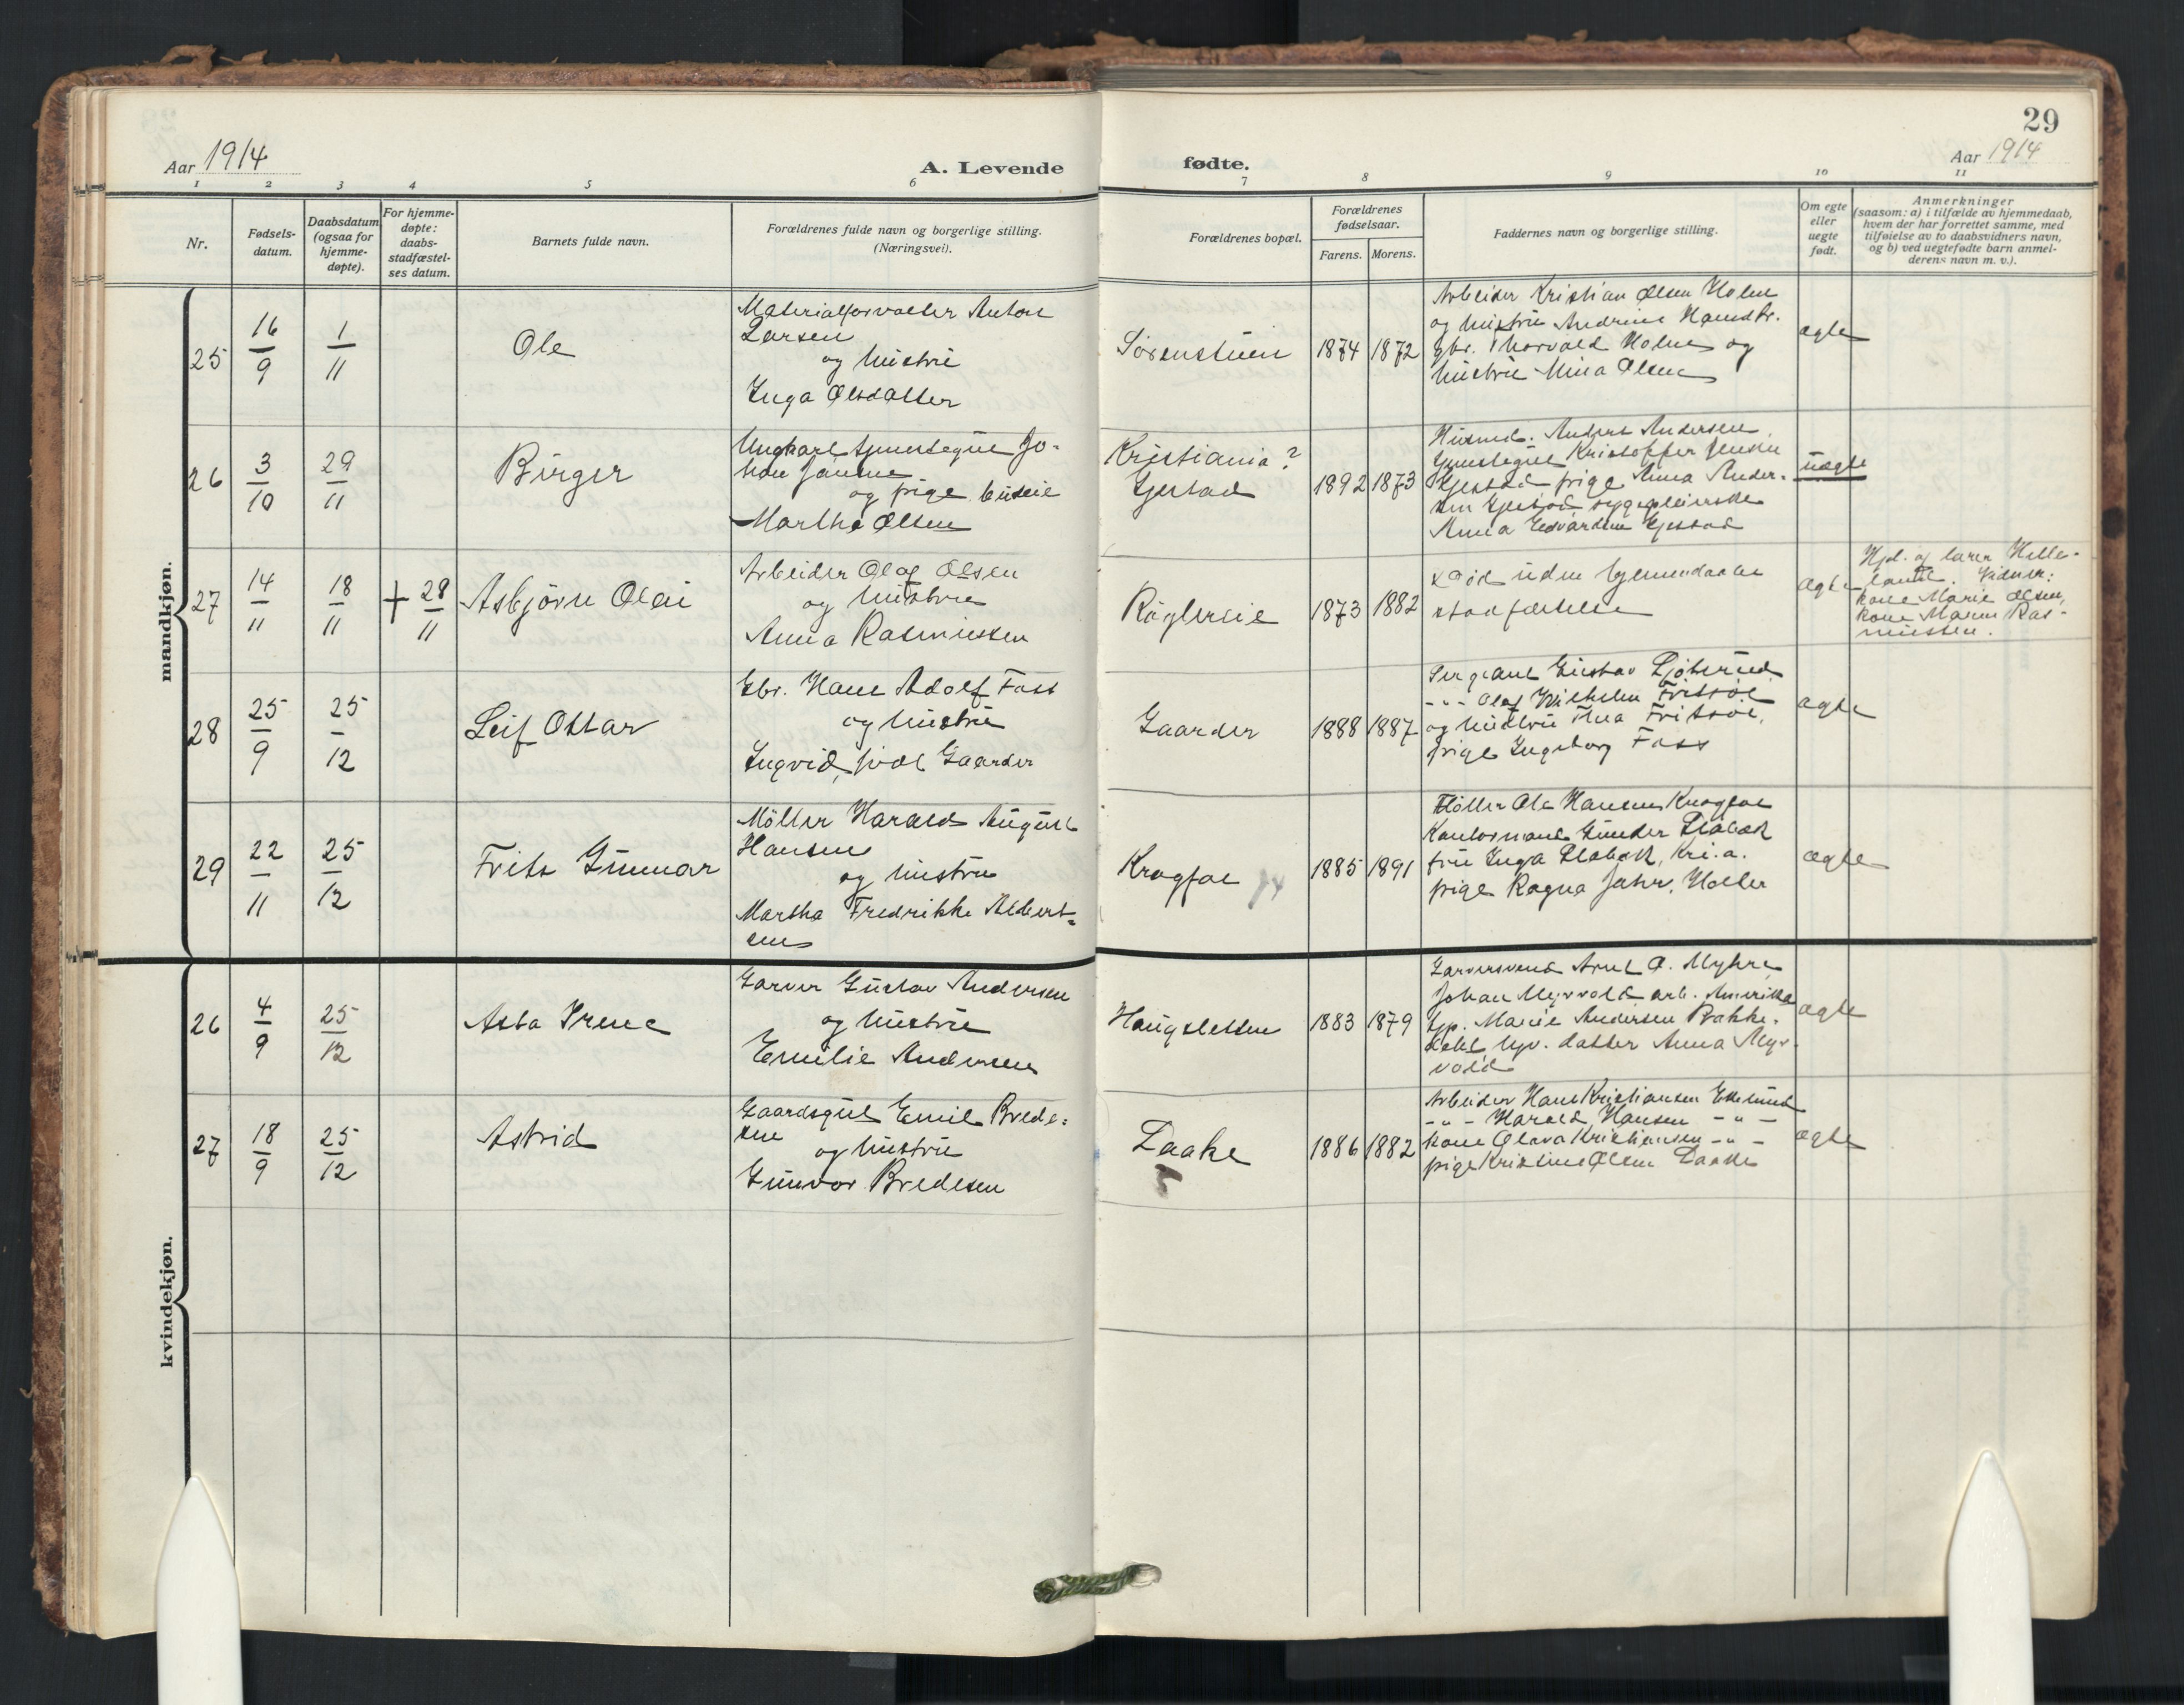 29
Aar 1914
A. Levende
fødte.
Aar 1914
1 2 3 4 5 6 7 8 9 10 11
Nr.
Fødsels-
datum.
Daabsdatum
(ogsaa for
hjemme-
døpte).
For hjemme-
døpte:
daabs-
stadfæstel-
ses datum.
Barnets fulde navn.
Forældrenes fulde navn og borgerlige stilling.
(Næringsvei).
Forældrenes bopæl.
Forældrenes
fødselsaar.
Farens. Morens.
Faddernes navn og borgerlige stilling.
Om egte
eller
uegte
født.
Anmerkninger
(saasom: a) i tilfælde av hjemmedaab,
hvem der har forrettet samme, med
tilføielse av to daabsvidners navn,
og b) ved uegtefødte barn anmel-
derens navn m. v.).
mandkjøn.
25
16/9
1/11
Ole
Materialforvalter Anton
Larsen
og hustru
Inga Olsdatter
1874 1872
Arbeider Kristian Olsen Holm
og hustru Andrine Hansdtr.
gbr. Thorvald Holm og
hustru Mina Olsen
ægte
26
3/10
29/11
Birger
Ungkarl tjenestegut Jo-
han Jansen
og pige
Martha Olsen
Kristiania?
Gjestad
1892 1873
Husmd. Anders Andersen
tjenestegut Kristoffer Jensen
Gjestad pige Anna Ander-
sen Gjestad sygepleierske
Anna Edvardsen Gjestad
uægte
27
14/11
18/11
+ 28/11
Asbjørn Olai
Arbeider Olaf Olsen
og hustru
Anna Rasmussen
Røglereie
1873 1882
Død uden hjemmedaabs
stadfæstelse
ægte
Hjd. af lærer Helle-
land. Vidner:
kone Marie Olsen,
kone Maren Ras-
mussen.
28
25/9
25/12
Leif Ottar
Gbr. Hans Adolf Foss
og hustru
Ingrid, født Gaarder
Gaarder
1888 1887
Sergeant Gustav Ljøterud
-"- Olaf Wilhelm Fritsøe
og hustru Thea Fritsøe,
pige Ingeborg Foss
ægte
29
22/11
25/12
Frits Gunnar
Møller Harald August
Hansen
og hustru
Martha Fredrikke Albert-
sen
Kragfos
1885 1891
Møller Ole Hansen Kragfos
Kontormand Gunder Slabæk
fru Inga Slabæk, Kri.a.
pige Ragna Jahr, Holter
ægte
kvindekjøn.
26
4/9
25/12
Asta Irene
Garver Gustav Andersen
og hustru
Emilie Andersen
Haugsletten
1883 1879
Garversvend Arnt O. Myhre
Johan Myrvold arb. Amerika
Marie Andersen Bakke-
datter Anna Myr-
vold
ægte
27
18/9
25/12
Astrid
Gaardsgut Emil Brede-
sen
og hustru
Gunvor Bredesen
Laake
1886 1882
Arbeider Hans Kristiansen
-"- Harald Hansen -"-
kone Olava Kristiansen -"-
pige Kristine Olsen Laake
ægte